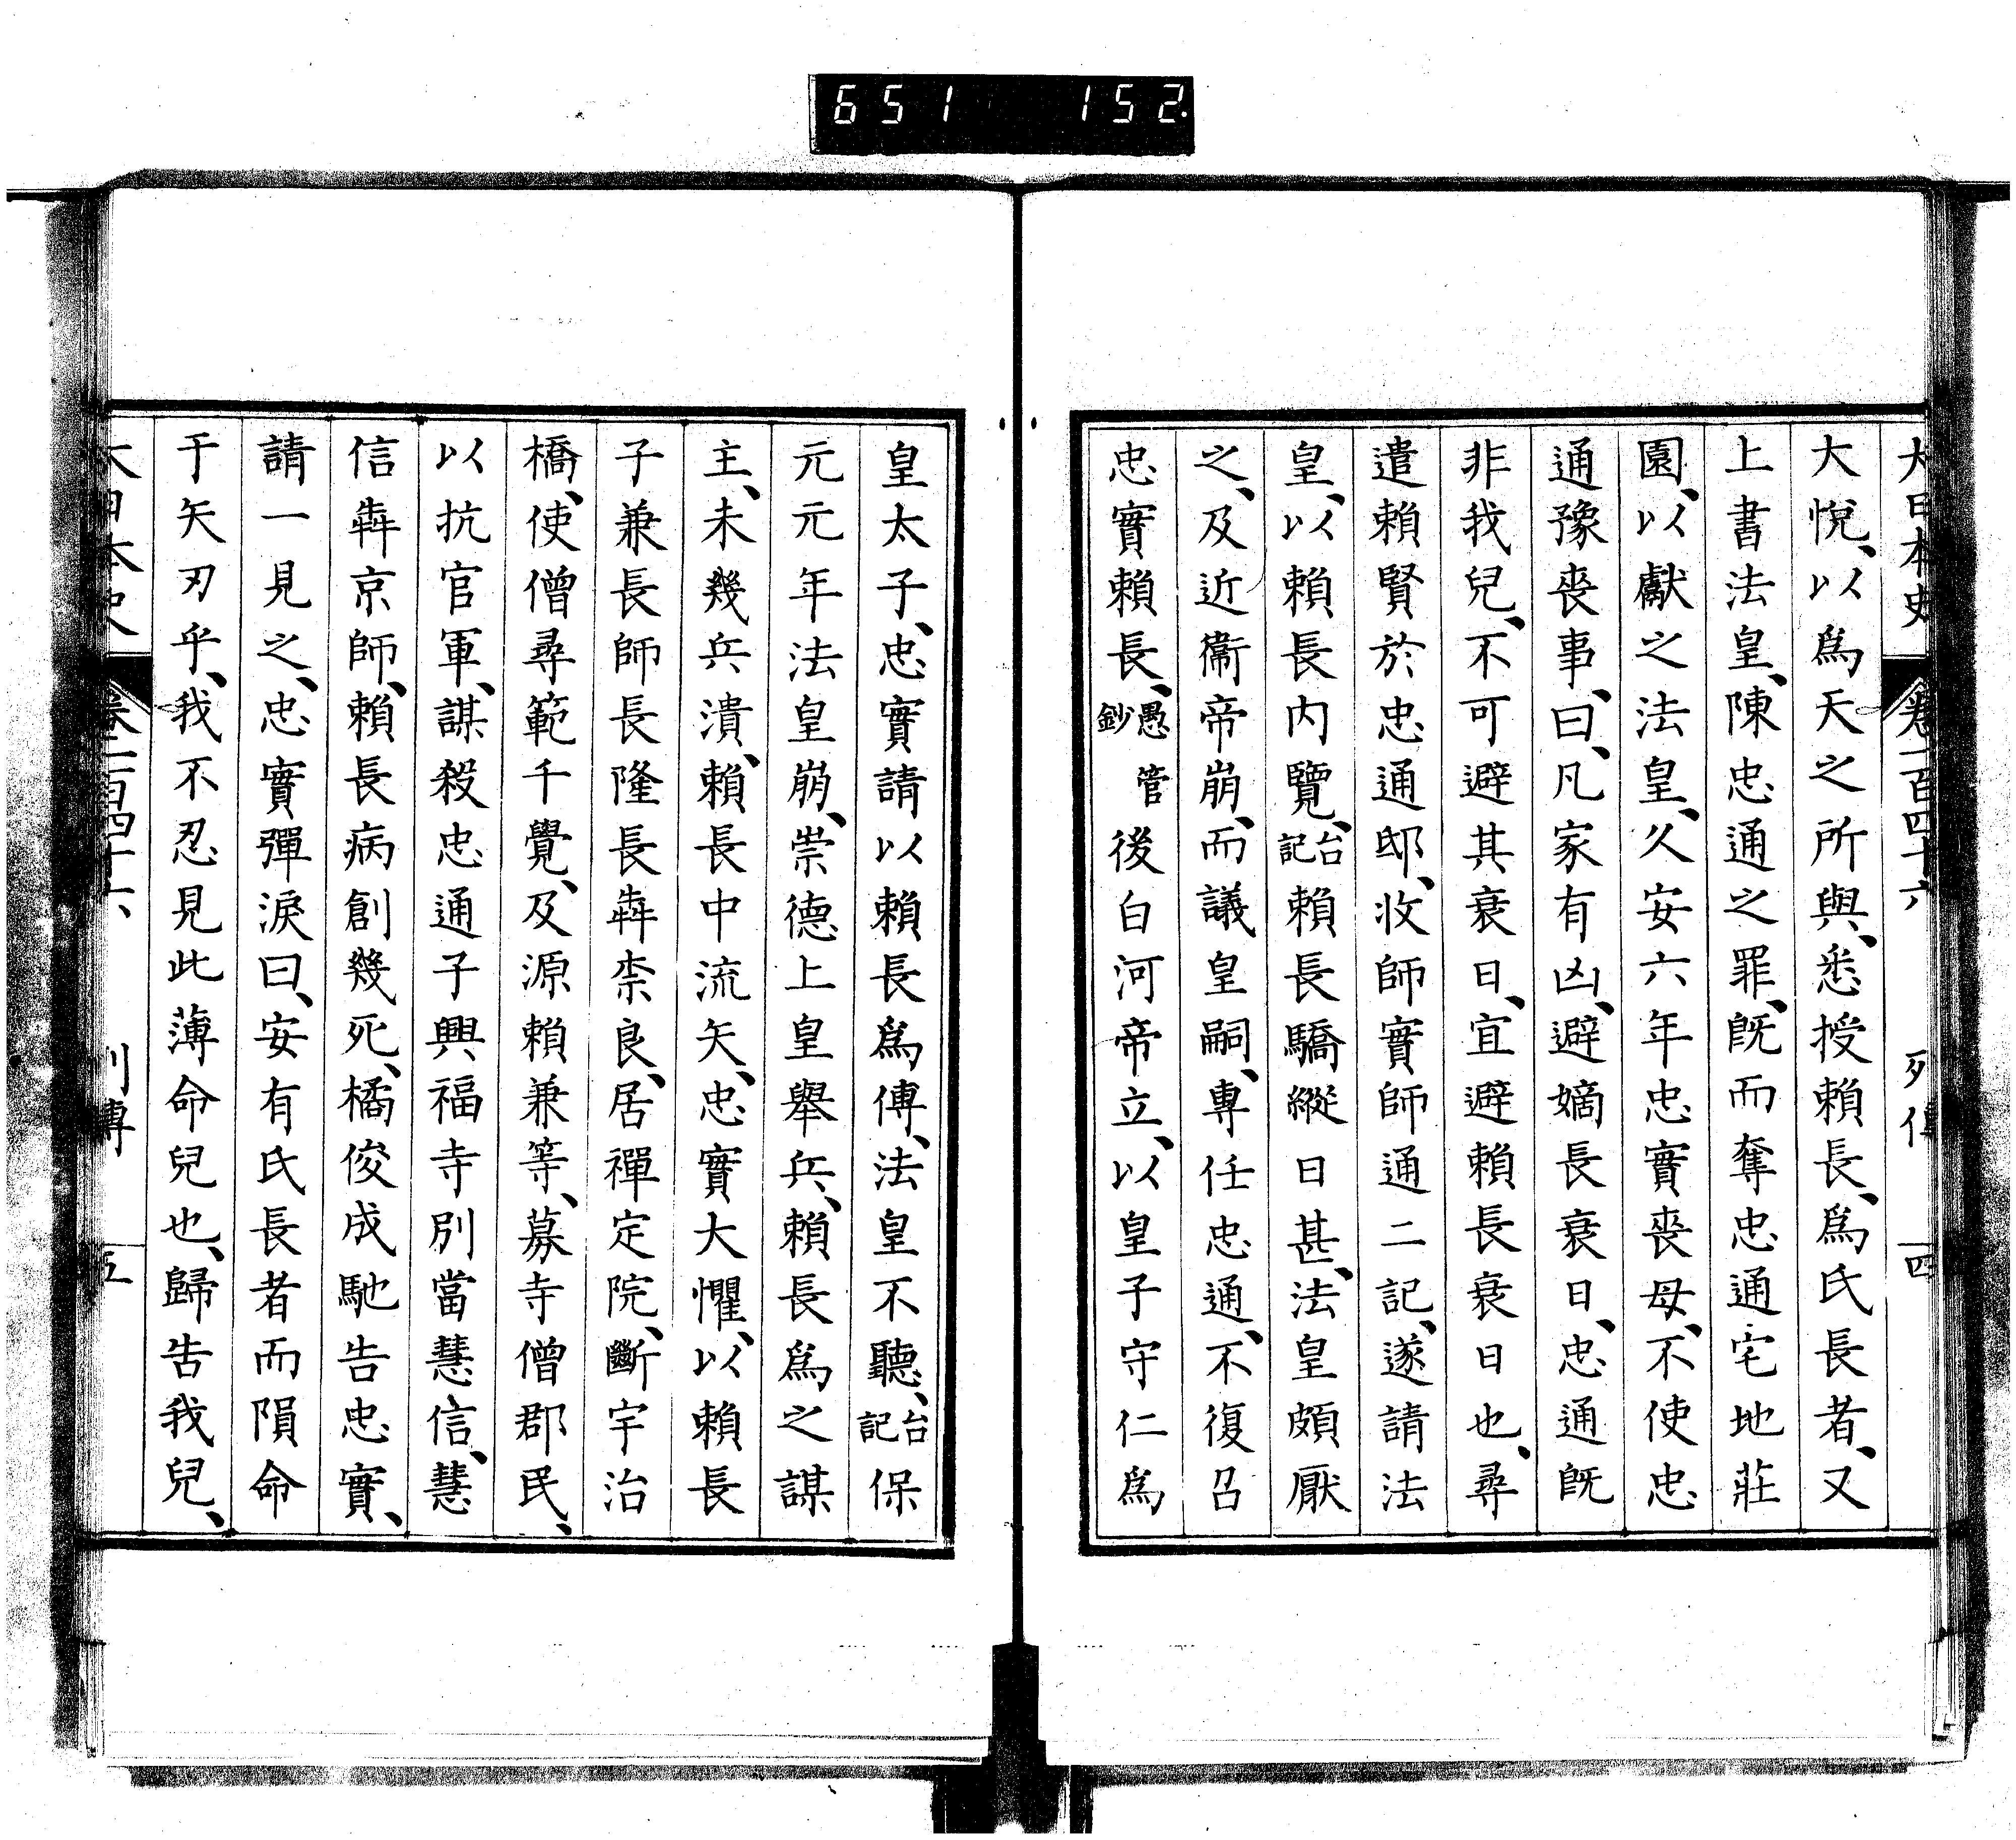 651 152.
大日本史 卷一百四十六 列傳 四
大悅、以爲天之所與、悉授賴長、爲氏長者、又
上書法皇、陳忠通之罪、旣而奪忠通宅地莊
園、以獻之法皇、久安六年忠實喪母、不使忠
通豫喪事、曰、凡家有凶、避嫡長衰日、忠通旣
非我兒、不可避其衰日、宜避賴長衰日也、尋
遣賴賢於忠通邸、收師實師通二記、遂請法
皇、以賴長內覽、台記賴長驕縱日甚、法皇頗厭
之、及近衞帝崩、而議皇嗣、專任忠通、不復召
忠實賴長、愚管鈔後白河帝立、以皇子守仁爲
皇太子、忠實請以賴長爲傅、法皇不聽、台記保
元元年法皇崩、崇德上皇舉兵、賴長爲之謀
主、未幾兵潰、賴長中流矢、忠實大懼、以賴長
子兼長師長隆長犇柰良、居禪定院、斷宇治
橋、使僧尋範千覺、及源賴兼等、募寺僧郡民、
以抗官軍、謀殺忠通子興福寺別當慧信、慧
信犇京師、賴長病創幾死、橘俊成馳告忠實、
請一見之、忠實彈淚曰、安有氏長者而隕命
于矢刃乎、我不忍見此薄命兒也、歸告我兒、
大日本史 卷一百四十六 列傳 五